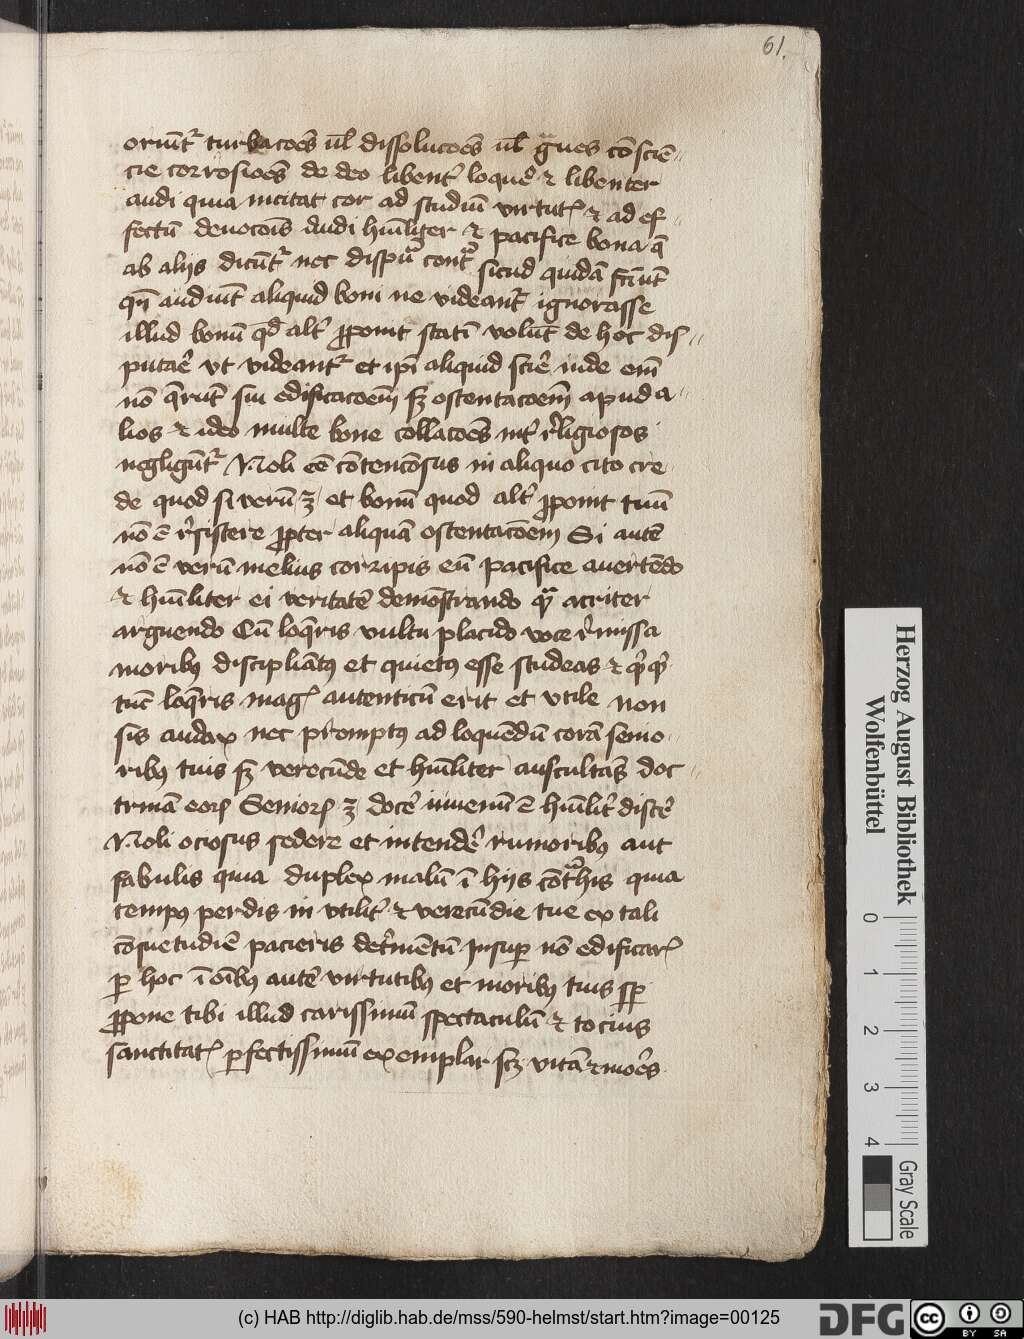 61.
oriūt᷑ turbacōes ul̄ dissolucōes ul̄ gͣues cōsciē-
cie corrosiōes de deo libent᷑ loque᷑ ⁊ libenter
audi quia incitat cor ad studiū virtut᷑ ⁊ ad ef-
fectū deuocōis Audi hūilit᷑er ⁊ pacifice bona q̄
ab alijs dicūt᷑ nec disput᷑ cont᷑ sicud quidā faciūt
qn̄ audiūt aliquid boni ne videant᷑ ignorasse
illud bonū qd̄ alt᷑ ꝓponit statī volūt de hoc dis-
putar᷑ vt videant᷑ et ip̄i aliquid scir᷑ inde em̄
nō q̄rūt sui edificacōem sꝫ ostentacōem apud a-
lios ⁊ ideo multe bone collacōes int᷑ religiosos
negligūt᷑ Noli eē cōtenciōsus in aliquo cito cre-
de quod si verū ꝫ et bonū quod alt᷑ ꝓponit tuū
nō ē r᷑sistere ꝓpter aliquā ostentacōem Si autē
nō ē verū melius corripis eū pacifice auertēdo
⁊ hūiliter ei veritatē demōstrando qͣ acriter
arguendo Cū loq̄ris vultu placido voce r᷑missa
moribꝰ discipliātꝰ et quietꝰ esse studeas ⁊ qͥcqͥd
tūc loq̄ris mag᷑ autenticū erit et vtile non
sis audax nec promptꝰ ad loquēdū corā senio-
ribꝰ tuis sꝫ verecūde et hūiliter auscultās doc-
trinā eoꝝ Senioꝝ ꝫ docer᷑ iuuenū ē hūilit᷑ discer᷑
Noli ociosus sedere et intender᷑ rumoribꝰ aut
fabulis quia duplex malū ī hijs cōtͣhis quia
tempꝰ perdis in vtilit᷑ ⁊ verecūdie tue ex tali
cōsuetudiē pacieris det᷑mētū Insuꝑ nō edificar᷑
ꝑ hoc ī oībꝰ autē virtutibꝰ et moribꝰ tuis sꝑ
ꝓpone tibi illud carissimū spectaculū ⁊ tocius
sanctitat᷑ ꝑfectissimū exemplar scꝫ vitā ⁊ mor᷑es
Herzog August Bibliothek
Wolfenbüttel
0 1 2 3 4
Gray Scale
(c) HAB http://diglib.hab.de/mss/590-helmst/start.htm?image=00125
DFG
cc BY SA